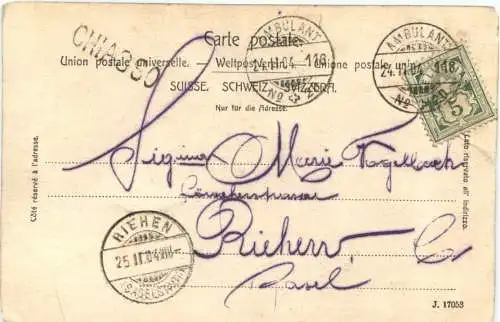 CHIASSO
Carte postale.
Union postale universelle. — Weltpostverein. — Unione postale univ
SUISSE. SCHWEIZ. SVIZZERA.
Nur für die Adresse.
AMBULANT
24.II.04 118
No
AMBULANT
24.II.04 118
No
5
Côté réservé à l'adresse.
Lato riservato all' indirizzo.
Signa Marie Vogelbach
Riehen
Basel
RIEHEN
25.II.04 VIII
(BASELSTADT)
J. 17053